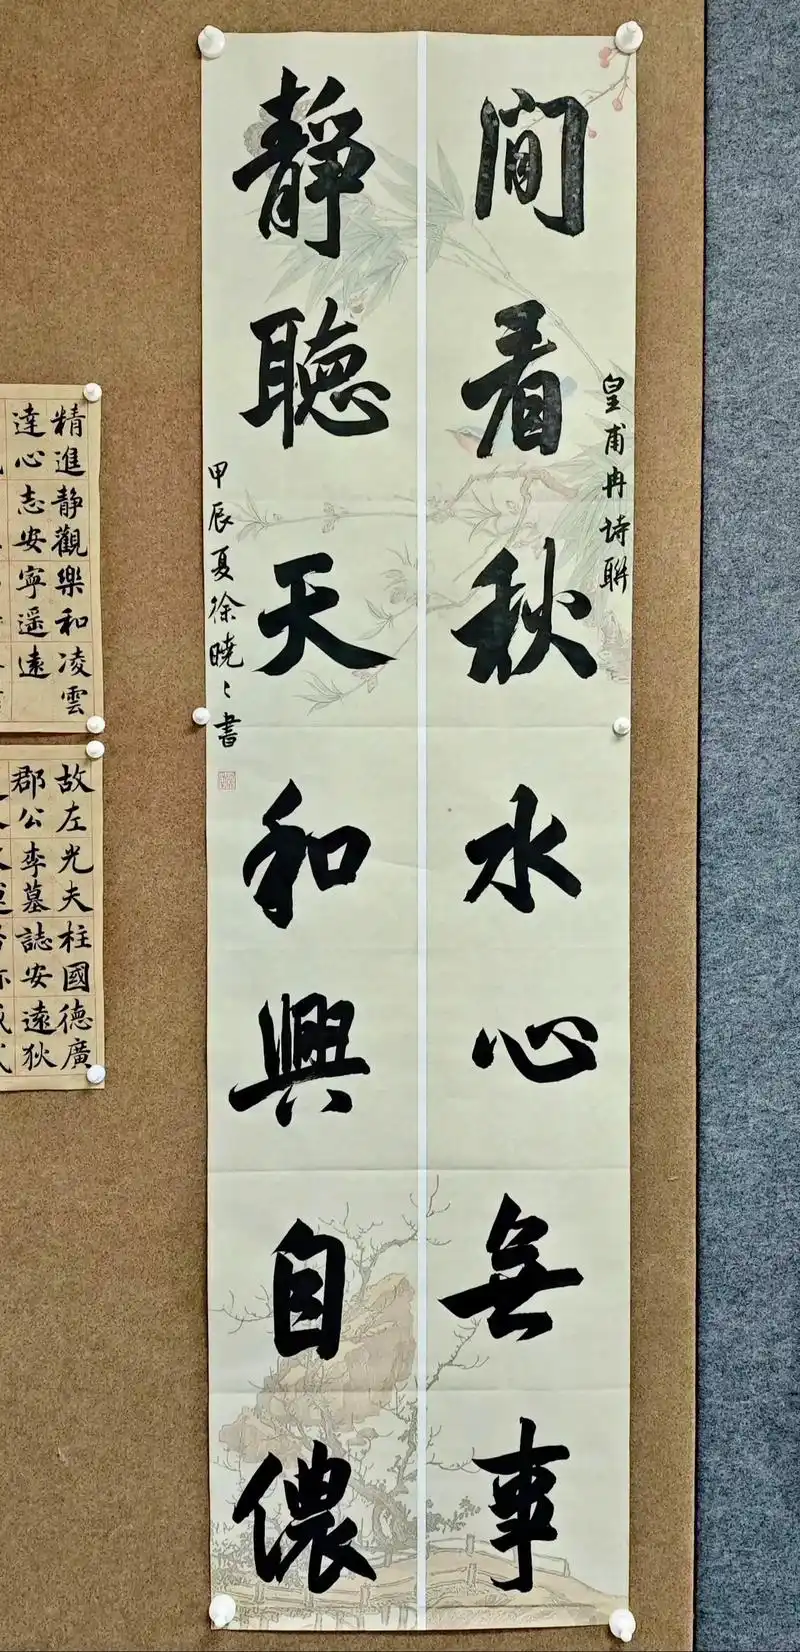 間看秋水心無事
皇甫冉詩聯
静聽天和興自儂
甲辰夏徐曉〻書
精進静觀樂和凌雲
達心志安寧遥遠
故左光夫柱國德廣
郡公李墓誌安遠狄